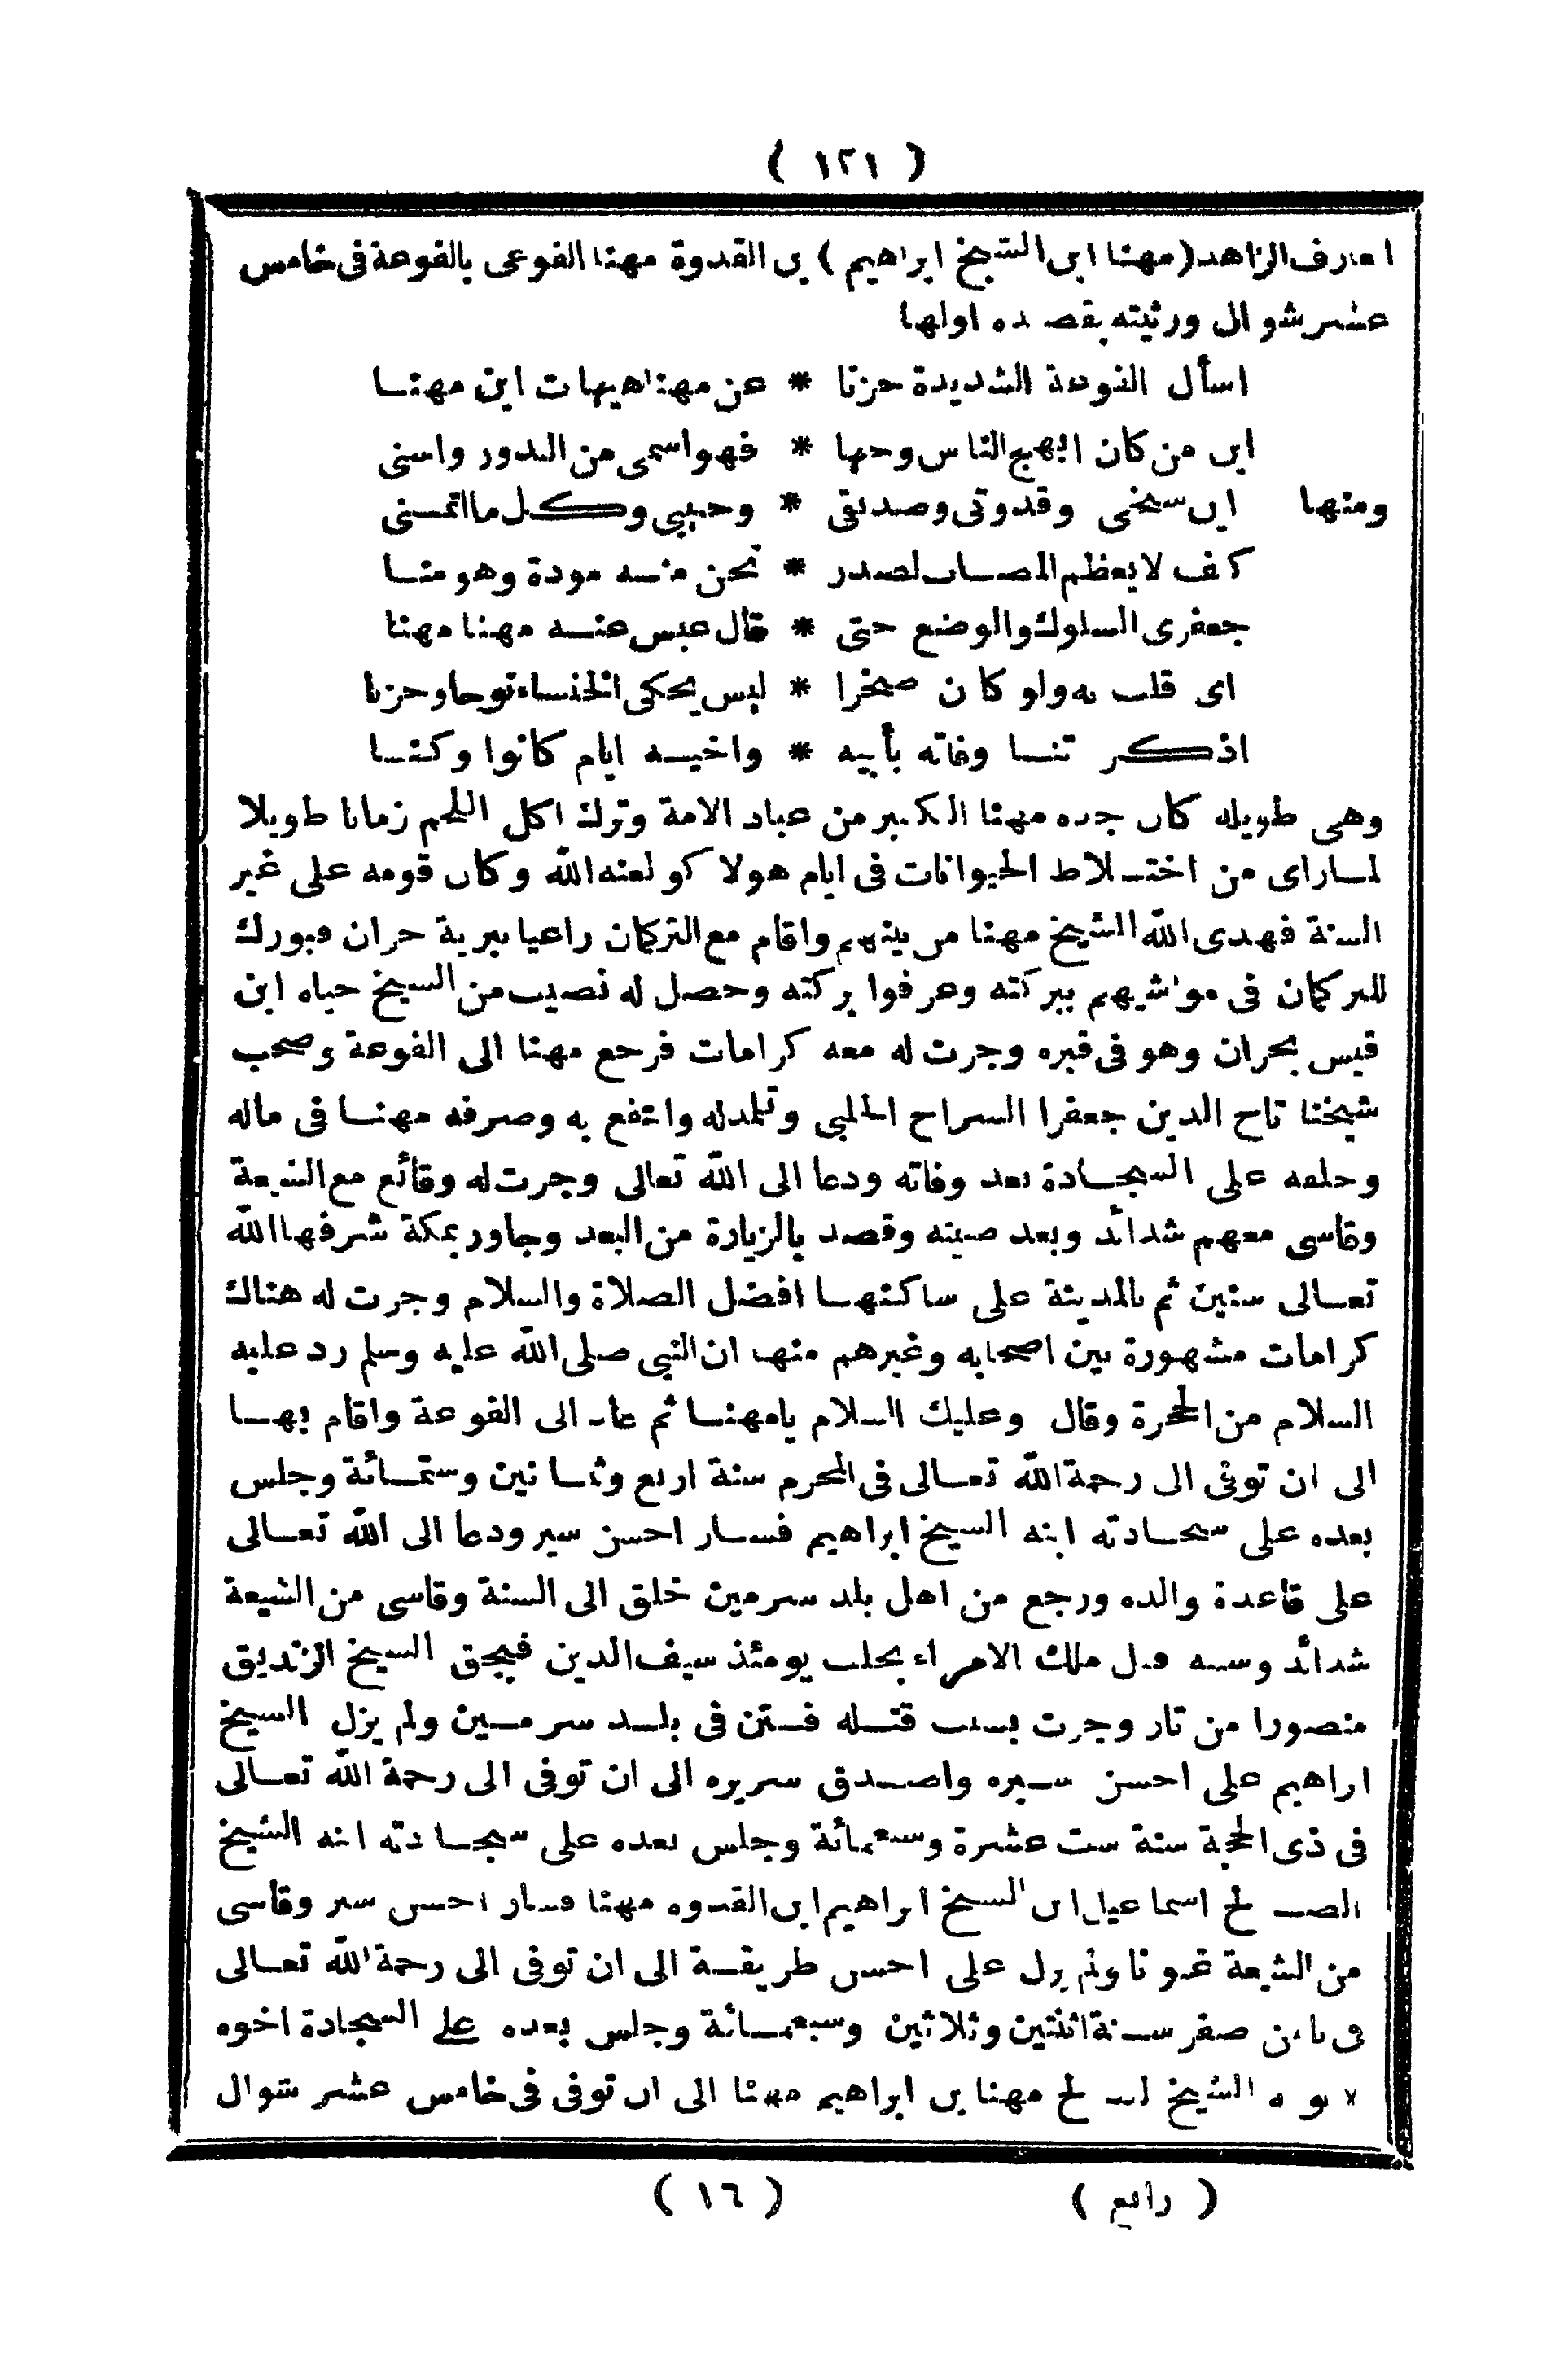 ( ١٢١ )
العارف الزاهد (مهنا ابن الشيخ ابراهيم) بن القدوة مهنا الفوعى بالفوعة فى خامس
عشر شوال ورثيته بقصيده اولها
اسأل الفوعة الشديدة حزنا * عن مهنا هيهات اين مهنا
اين من كان ابهج الناس وجها * فهو اسمى من البدور واسنى
ومنها اين شيخى وقدوتى وصديقى * وحبيبى وكل ما اتمنى
كيف لا يعظم المصاب لصدر * نحن منه مودة وهو منا
جعفرى السلوك والوضع حتى * قال عبس عنه مهنا مهنا
اى قلب به ولو كان صخرا * ليس يحكى الخنساء نوحا وحزنا
اذكرتنا وفاته بأبيه * واخيه ايام كانوا وكنا
وهى طويله كان جده مهنا الكبير من عباد الامة وترك اكل اللحم زمانا طويلا
لما راى من اختلاط الحيوانات فى ايام هولاكو لعنه الله وكان قومه على غير
السنة فهدى الله الشيخ مهنا من بينهم واقام مع التركمان راعيا ببرية حران فبورك
للتركمان فى مواشيهم ببركته وعرفوا بركته وحصل له نصيب من الشيخ حياه ابن
قيس بحران وهو فى قبره وجرت له معه كرامات فرجع مهنا الى الفوعة وصحب
شيخنا تاج الدين جعفرا السراج الحلبى وتلمذ له وانتفع به وصرفه مهنا فى ماله
وخلفه على السجادة بعد وفاته ودعا الى الله تعالى وجرت له وقائع مع الشيعة
وقاسى معهم شدائد وبعد صيته وقصد بالزيارة من البعد وجاور بمكة شرفها الله
تعالى سنين ثم بالمدينة على ساكنها افضل الصلاة والسلام وجرت له هناك
كرامات مشهورة بين اصحابه وغيرهم منها ان النبى صلى الله عليه وسلم رد عليه
السلام من الحجرة وقال وعليك السلام يا مهنا ثم عاد الى الفوعة واقام بها
الى ان توفى الى رحمة الله تعالى فى المحرم سنة اربع وثمانين وستمائة وجلس
بعده على سجادته ابنه الشيخ ابراهيم فسار احسن سير ودعا الى الله تعالى
على قاعدة والده ورجع من اهل بلد سرمين خلق الى السنة وقاسى من الشيعة
شدائد وسبه قتل ملك الامراء بحلب يومئذ سيف الدين قبجق الشيخ الزنديق
منصورا من تار وجرت بسبب قتله فتن فى بلد سرمين ولم يزل الشيخ
ابراهيم على احسن سيره واصدق سريره الى ان توفى الى رحمة الله تعالى
فى ذى الحجة سنة ست عشرة وسبعمائة وجلس بعده على سجادته ابنه الشيخ
الصالح اسماعيل ابن الشيخ ابراهيم ابن القدوه مهنا فسار احسن سير وقاسى
من الشيعة غبونا ولم يزل على احسن طريقة الى ان توفى الى رحمة الله تعالى
فى ثامن صفر سنة اثنتين وثلاثين وسبعمائة وجلس بعده على السجادة اخوه
لابويه الشيخ الصالح مهنا بن ابراهيم مهنا الى ان توفى فى خامس عشر شوال
( رابع ) ( ١٦ )